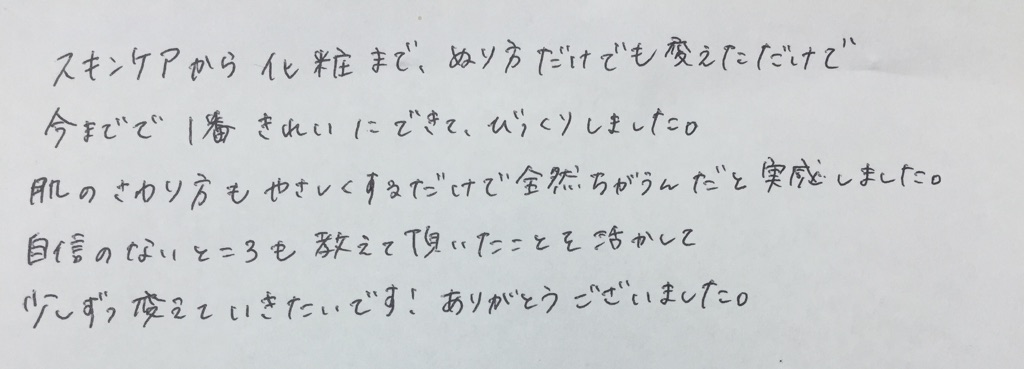 スキンケアから化粧まで、ぬり方だけでも変えただけで
今までで1番きれいにできて、びっくりしました。
肌のさわり方もやさしくするだけで全然ちがうんだと実感しました。
自信のないところも教えて頂いたことを活かして
少しずつ変えていきたいです！ありがとうございました。